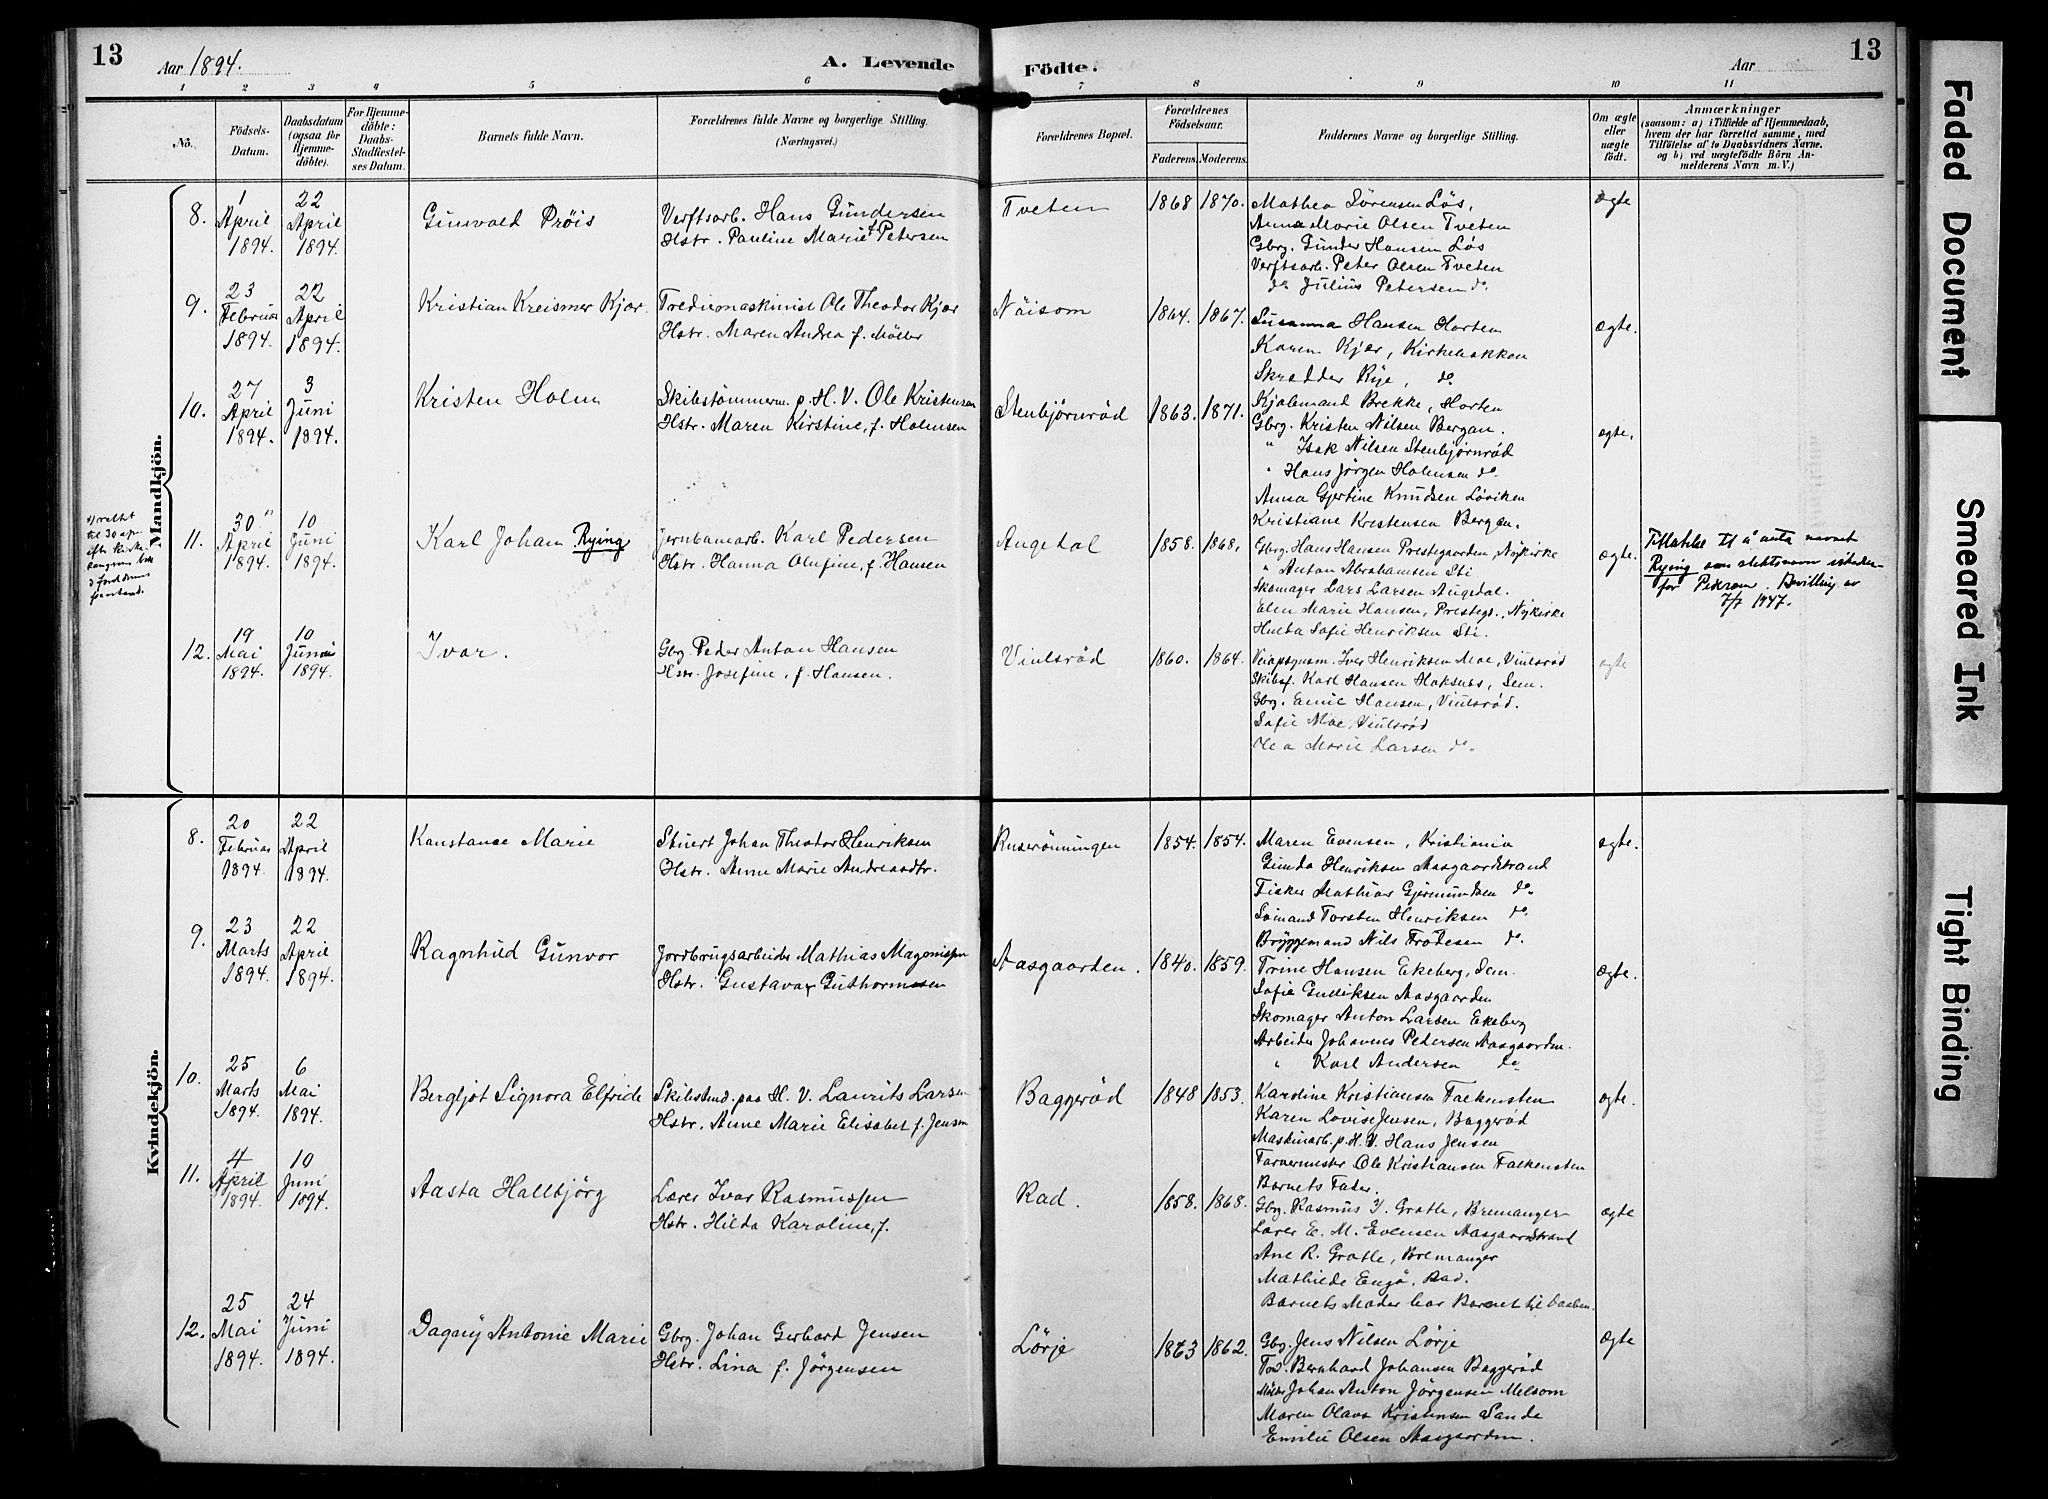 13
Aar 1894.
A. Levende
Födte.
Aar
13
1 2 3 4 5 6 7 8 9 10 11
No.
Födsels-
Datum.
Daabsdatum
(ogsaa for
Hjemme-
döbte).
For Hjemme-
döbte:
Daabs-
Stadfæstel-
ses Datum.
Barnets fulde Navn.
Forældrenes fulde Navne og borgerlige Stilling.
(Næringsvei.)
Forældrenes Bopæl.
Forældrenes
Födselsaar.
Faderens. Moderens.
Faddernes Navne og borgerlige Stilling.
Om ægte
eller
uægte
födt.
Anmærkninger
(saasom: a) i Tilfælde af Hjemmedaab,
hvem der har forrettet samme, med
Tilföielse af to Daabsvidners Navne.
og b) ved uægtefödte Börn An-
melderens Navn m. V.)
Mandkjön.
8.
1
April
1894.
22
April
1894.
Gunvald Prøis
Verftsarb. Hans Gundersen
Hstr. Pauline Marie f. Petersen
Tveten
1868 1870.
Mathea Sørensen Løs,
Anna Marie Olsen Tveten
Gbrg. Gunder Hansen Løs
Verftsarb. Peter Olsen Tveten
do Julius Petersen do.
Ægte
9.
23
Februar
1894.
22
April
1894.
Kristian Kreismer Kjær.
Trediemaskinist Ole Theodor Kjær
Hstr. Maren Andrea f. Möller
Nöisom
1864. 1867.
Susanna Hansen Horten
Karen Kjær, Kirkebakken
Skrædder Rye, do.
Kjølemand Brekke, Horten
ægte.
10.
27
April
1894.
3
Juni
1894.
Kristen Holm
Skibstömmerm. p. H. V. Ole Kristensen
Hstr. Maren Kirstine, f. Holmsen
Stenbjørnrød
1863. 1871.
Gbrg. Kristen Nilsen Bergan.
" Isak Nilsen Stenbjørnrød
" Hans Jörgen Holmsen do.
Anna Gjertine Knudsen Løviken
Kristiane Kristensen Bergan.
ægte.
11.
30 1)
April
1894.
10
Juni
1894.
Karl Johan Rying
Jernbanearb. Karl Pedersen
Hstr. Hanna Olufine, f. Hansen
Augedal
1858. 1868.
Gbrg. Hans Hansen Prestegaarden, Nykirke
" Anton Abrahamsen Sti
Skomager Lars Larsen Augedal.
Elen Marie Hansen, Prestegd., Nykirke
Hulda Sofie Henriksen Sti.
ægte.
Tillatelse til å anta navnet
Rying som slektsnavn isteden-
for Pedersen. Bevilling av
7/7 1947.
1) rettet
til 30 ap.
efter
12.
19
Mai
1894.
10
Juni
1894.
Ivar.
Gbrg. Peder Anton Hansen
Hstr. Josefine, f. Hansen.
Viulsrød
1860. 1864.
Iver Henriksen Moe, Viulsrød
Skibsf. Karl Hansen Haksnes, Sem.
Gbrg. Emil Hansen, Viulsrød.
Sofie Moe, Viulsrød
Olea Marie Larsen do.
ægte
Kvindekjön.
8.
20
Februar
1894.
22
April
1894.
Konstance Marie
Stuert Johan Theodor Henriksen
Hstr. Anne Marie Andreasdtr.
Ruserønningen
1854. 1854.
Maren Evensen, Kristiania
Gunda Henriksen Aasgaardstrand
Fisker Mathias Gjermundsen do.
Sømand Torsten Henriksen do.
Bryggemand Nils Frodesen do.
ægte.
9.
23
Marts
1894.
22
April
1894.
Ragnhild Gunvor
Jordbrugsarbeider Mathias Magnussen
Hstr. Gustava f. Guthormsen
Aasgaarden.
1840. 1859.
Trine Hansen Ekeberg, Sem.
Sofie Gulliksen Aasgaarden
Skomager Anton Larsen Ekeberg
Arbeider Johannes Pedersen Aasgaarden.
" Karl Andersen do
Ægte.
10.
25
Marts
1894.
6
Mai
1894.
Bergljot Signora Elfride
Skibstmd. paa H. V. Laurits Larsen
Hstr. Anne Marie Elisabet f. Jensen
Baggerød
1848 1853.
Karoline Kristiansen Falkensten
Karen Lovise Jensen, Baggerød
Maskinarb. p. H. V. Hans Jensen
Farvermester Ole Kristiansen Falkensten
Barnets Fader.
ægte.
11.
4
April
1894.
10
Juni
1894.
Aasta Hallbjörg
Lærer Ivar Rasmussen
Hstr. Hilda Karoline, f.
Rad.
1858. 1868.
Gbrg. Rasmus I. Grotle, Bremanger
Lærer E. M. Evensen Aasgaardstrand
Ane R. Grotle, Bremanger
Mathilde Engø, Rad.
Barnets Moder bar Barnet til Daaben.
Ægte
12.
25
Mai
1894.
24
Juni
1894.
Dagny Antonie Marie
Gbrg. Johan Gerhard Jensen
Hstr. Lina f. Jörgensen
Lörje
1863 1862.
Gbrg. Jens Nilsen Lörje
Bernhard Johansen Baggerød
Johan Anton Jörgensen Melsom
Maren Olava Kristensen Sande
Emilie Olsen Aasgaarden.
Ægte
Faded Document
Smeared Ink
Tight Binding